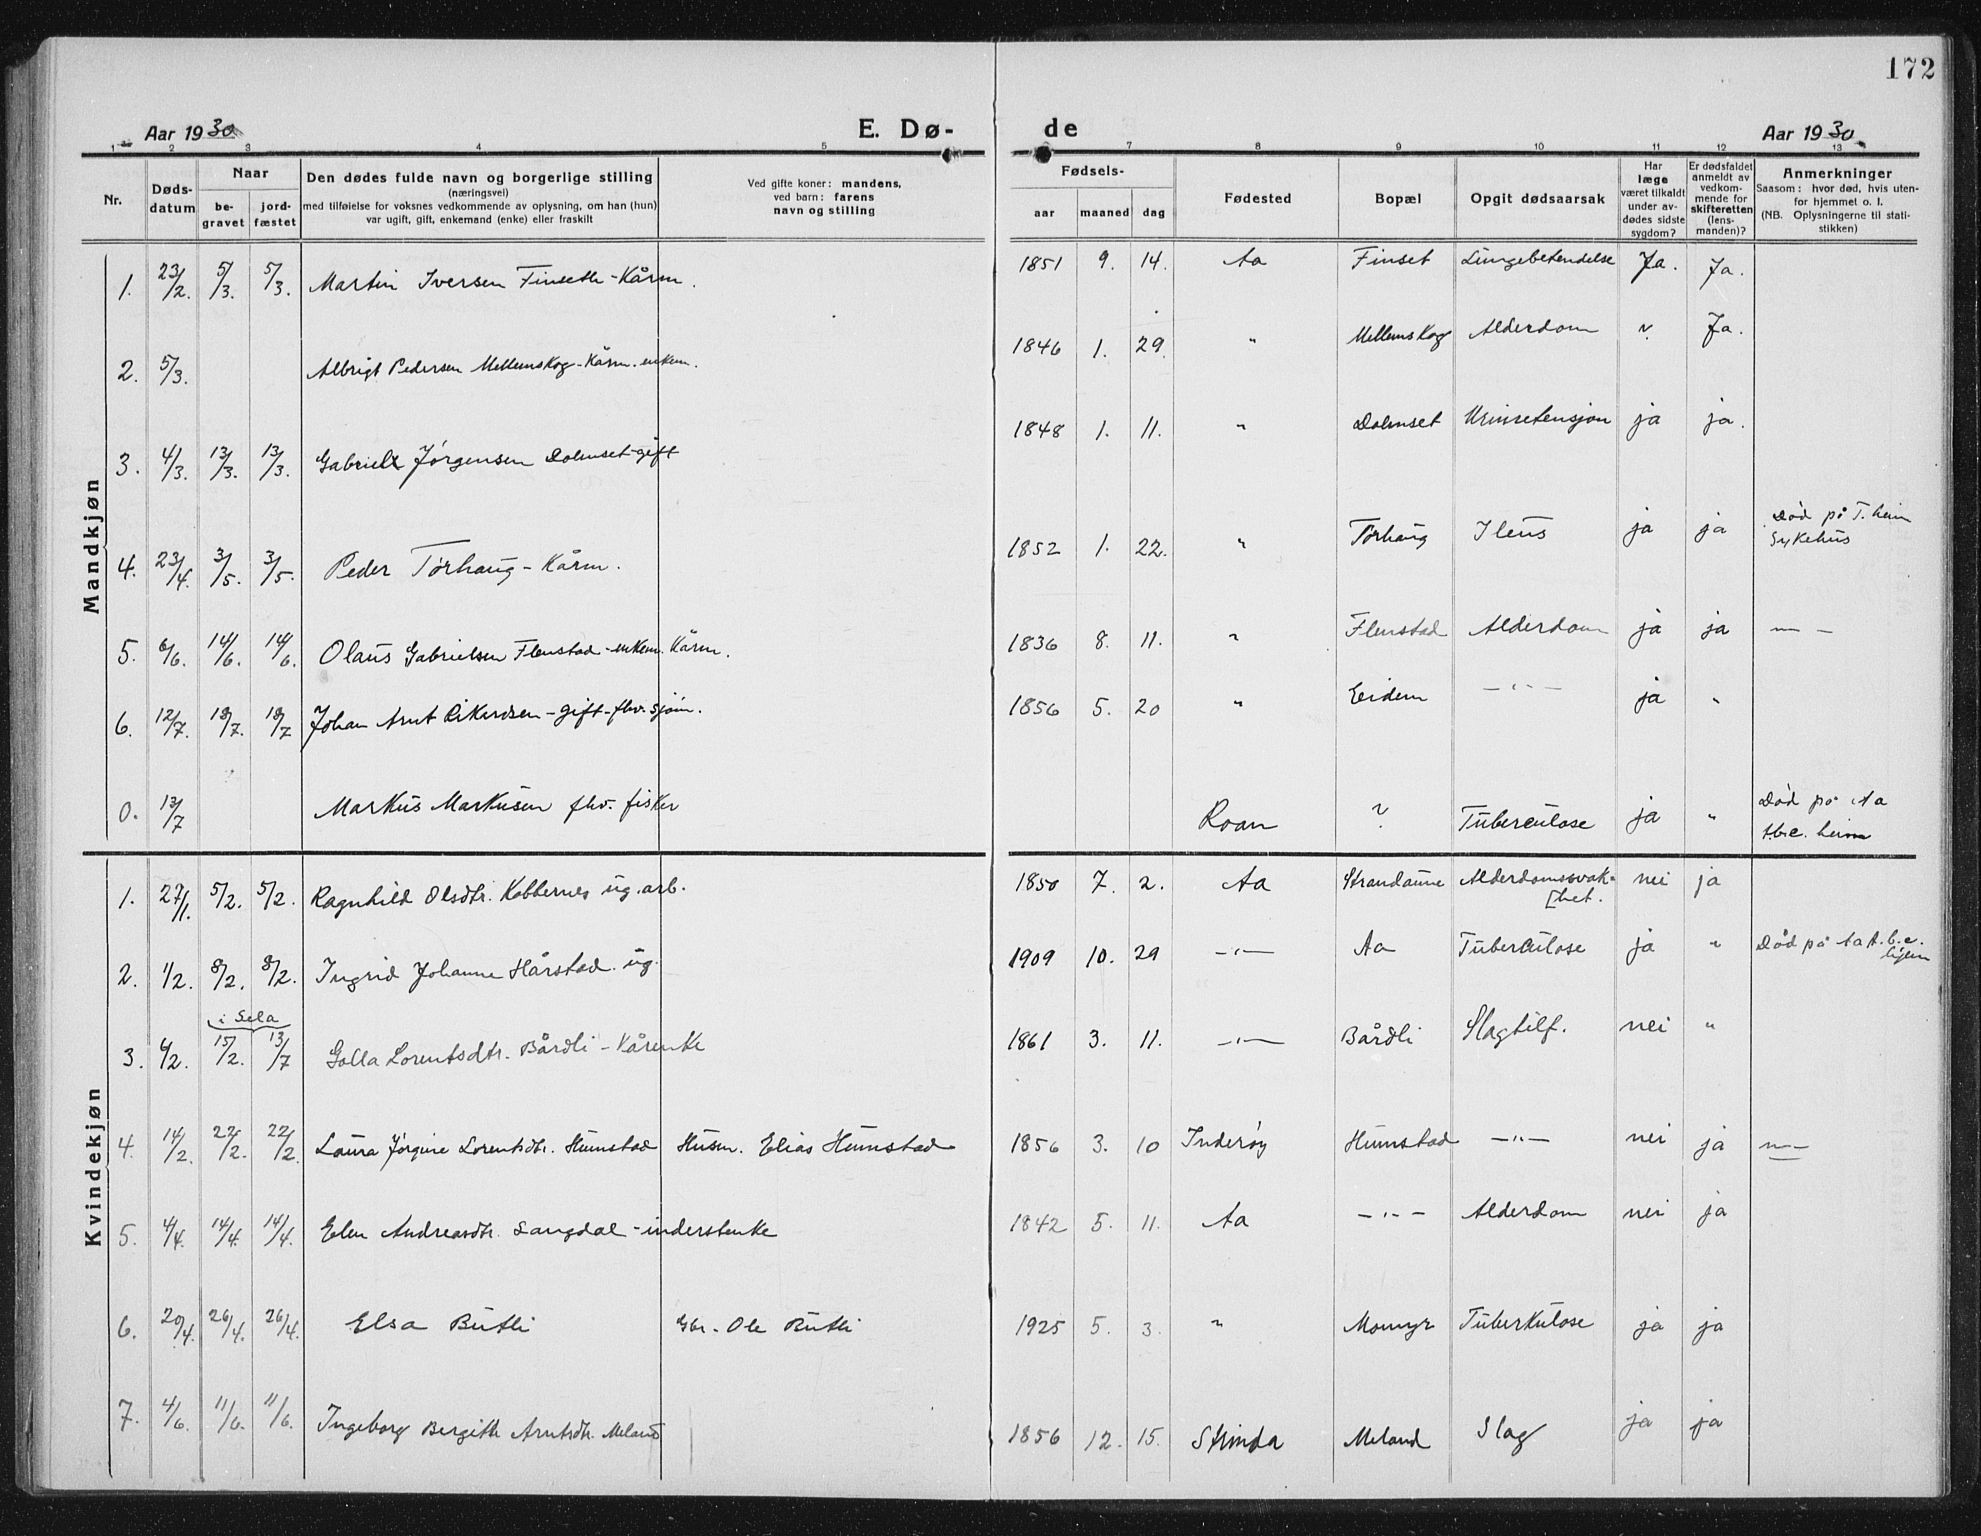 172
Aar 1930
E. Dø-
de
Aar 1930
1 2 3 4 5 7 8 9 10 11 12 13
Nr.
Døds-
datum
Naar
be-
gravet
jord-
fæstet
Den dødes fulde navn og borgerlige stilling
(næringsvei)
med tilføielse for voksnes vedkommende av oplysning, om han (hun)
var ugift, gift, enkemand (enke) eller fraskilt
Ved gifte koner: mandens,
ved barn: farens
navn og stilling
Fødsels-
aar maaned dag
Fødested
Bopæl
Opgit dødsaarsak
Har
læge
været tilkaldt
under av-
dødes sidste
sygdom?
Er dødsfaldet
anmeldt av
vedkom-
mende for
skifteretten
(lens-
manden)?
Anmerkninger
Saasom: hvor død, hvis uten-
for hjemmet o. l.
(NB. Oplysningerne til stati-
stikken)
Mandkjøn
1. 23/2. 5/3. 5/3. Martin Iversen Finseth - Kårm. 1851 9. 14. Aa Finset Lungebetendelse Ja. Ja.
2. 5/3. Albrigt Pedersen Mellemskog - Kårm. enkem. 1846 1. 29. " Mellemskog Alderdom ? Ja.
3. 4/3. 13/3. 13/3. Gabriel Jørgensen Dolmset - gift 1848 1. 11. " Dolmset Urinretensjon ja ja.
4. 23/4. 3/5. 3/5. Peder Tørhaug - Kårm. 1852 1. 22. " Tørhaug Ileus ja ja Død på T.heim
Sykehus
5. 6/6. 14/6. 14/6. Olaus Gabrielsen Flenstad - enkem. Kårm. 1836 8. 11. " Flenstad Alderdom ja ja — —
6. 12/7. 18/7. 18/7 Johan Arnt Rikardsen - gift - fhv. sjøm. 1856 5. 20 " Eidem — " — ja "
0. 13/7 Markus Markusen fhv. fisker Roan ? Tuberculose ja " Død på Aa
tb.c. heim
Kvindekjøn
1. 27/1. 5/2. 5/2. Ragnhild Olsdtr. Kobbernes ug. arb. 1850 7. 2. Aa Strandaune Alderdomssvak-
[het. nei ja
2. 1/2. 8/2. 8/2. Ingrid Johanne Hårstad. ug. 1909 10. 29 — " — Aa Tuberculose ja " Død på Aa t.b.c.
hjem
i Sela
3. 6/2. 15/2. 13/7 Golla Lorentsdtr. Bårdli - Kårenke 1861 3. 11. — " — Bårdli Slagtilf. nei "
4. 14/2. 22/2. 22/2 Laura Jørgine Lorentsdtr. Humstad Husm. Elias Humstad 1856 3. 10 Inderøy Humstad — " — nei ja — " —
5. 4/4. 14/4. 14/4. Elen Andreasdtr. Langdal - inderstenke 1842 5. 11. Aa — " — Alderdom nei ja
6. 20/4. 26/4. 26/4. Elsa Butli Gbr. Ole Butli 1925 5. 3. " Momyr Tuberkulose ja ja
7. 4/6. 11/6. 11/6. Ingeborg Bergitte Arntsdtr. Meland 1856 12. 15. Strinda Meland Slag ja ja